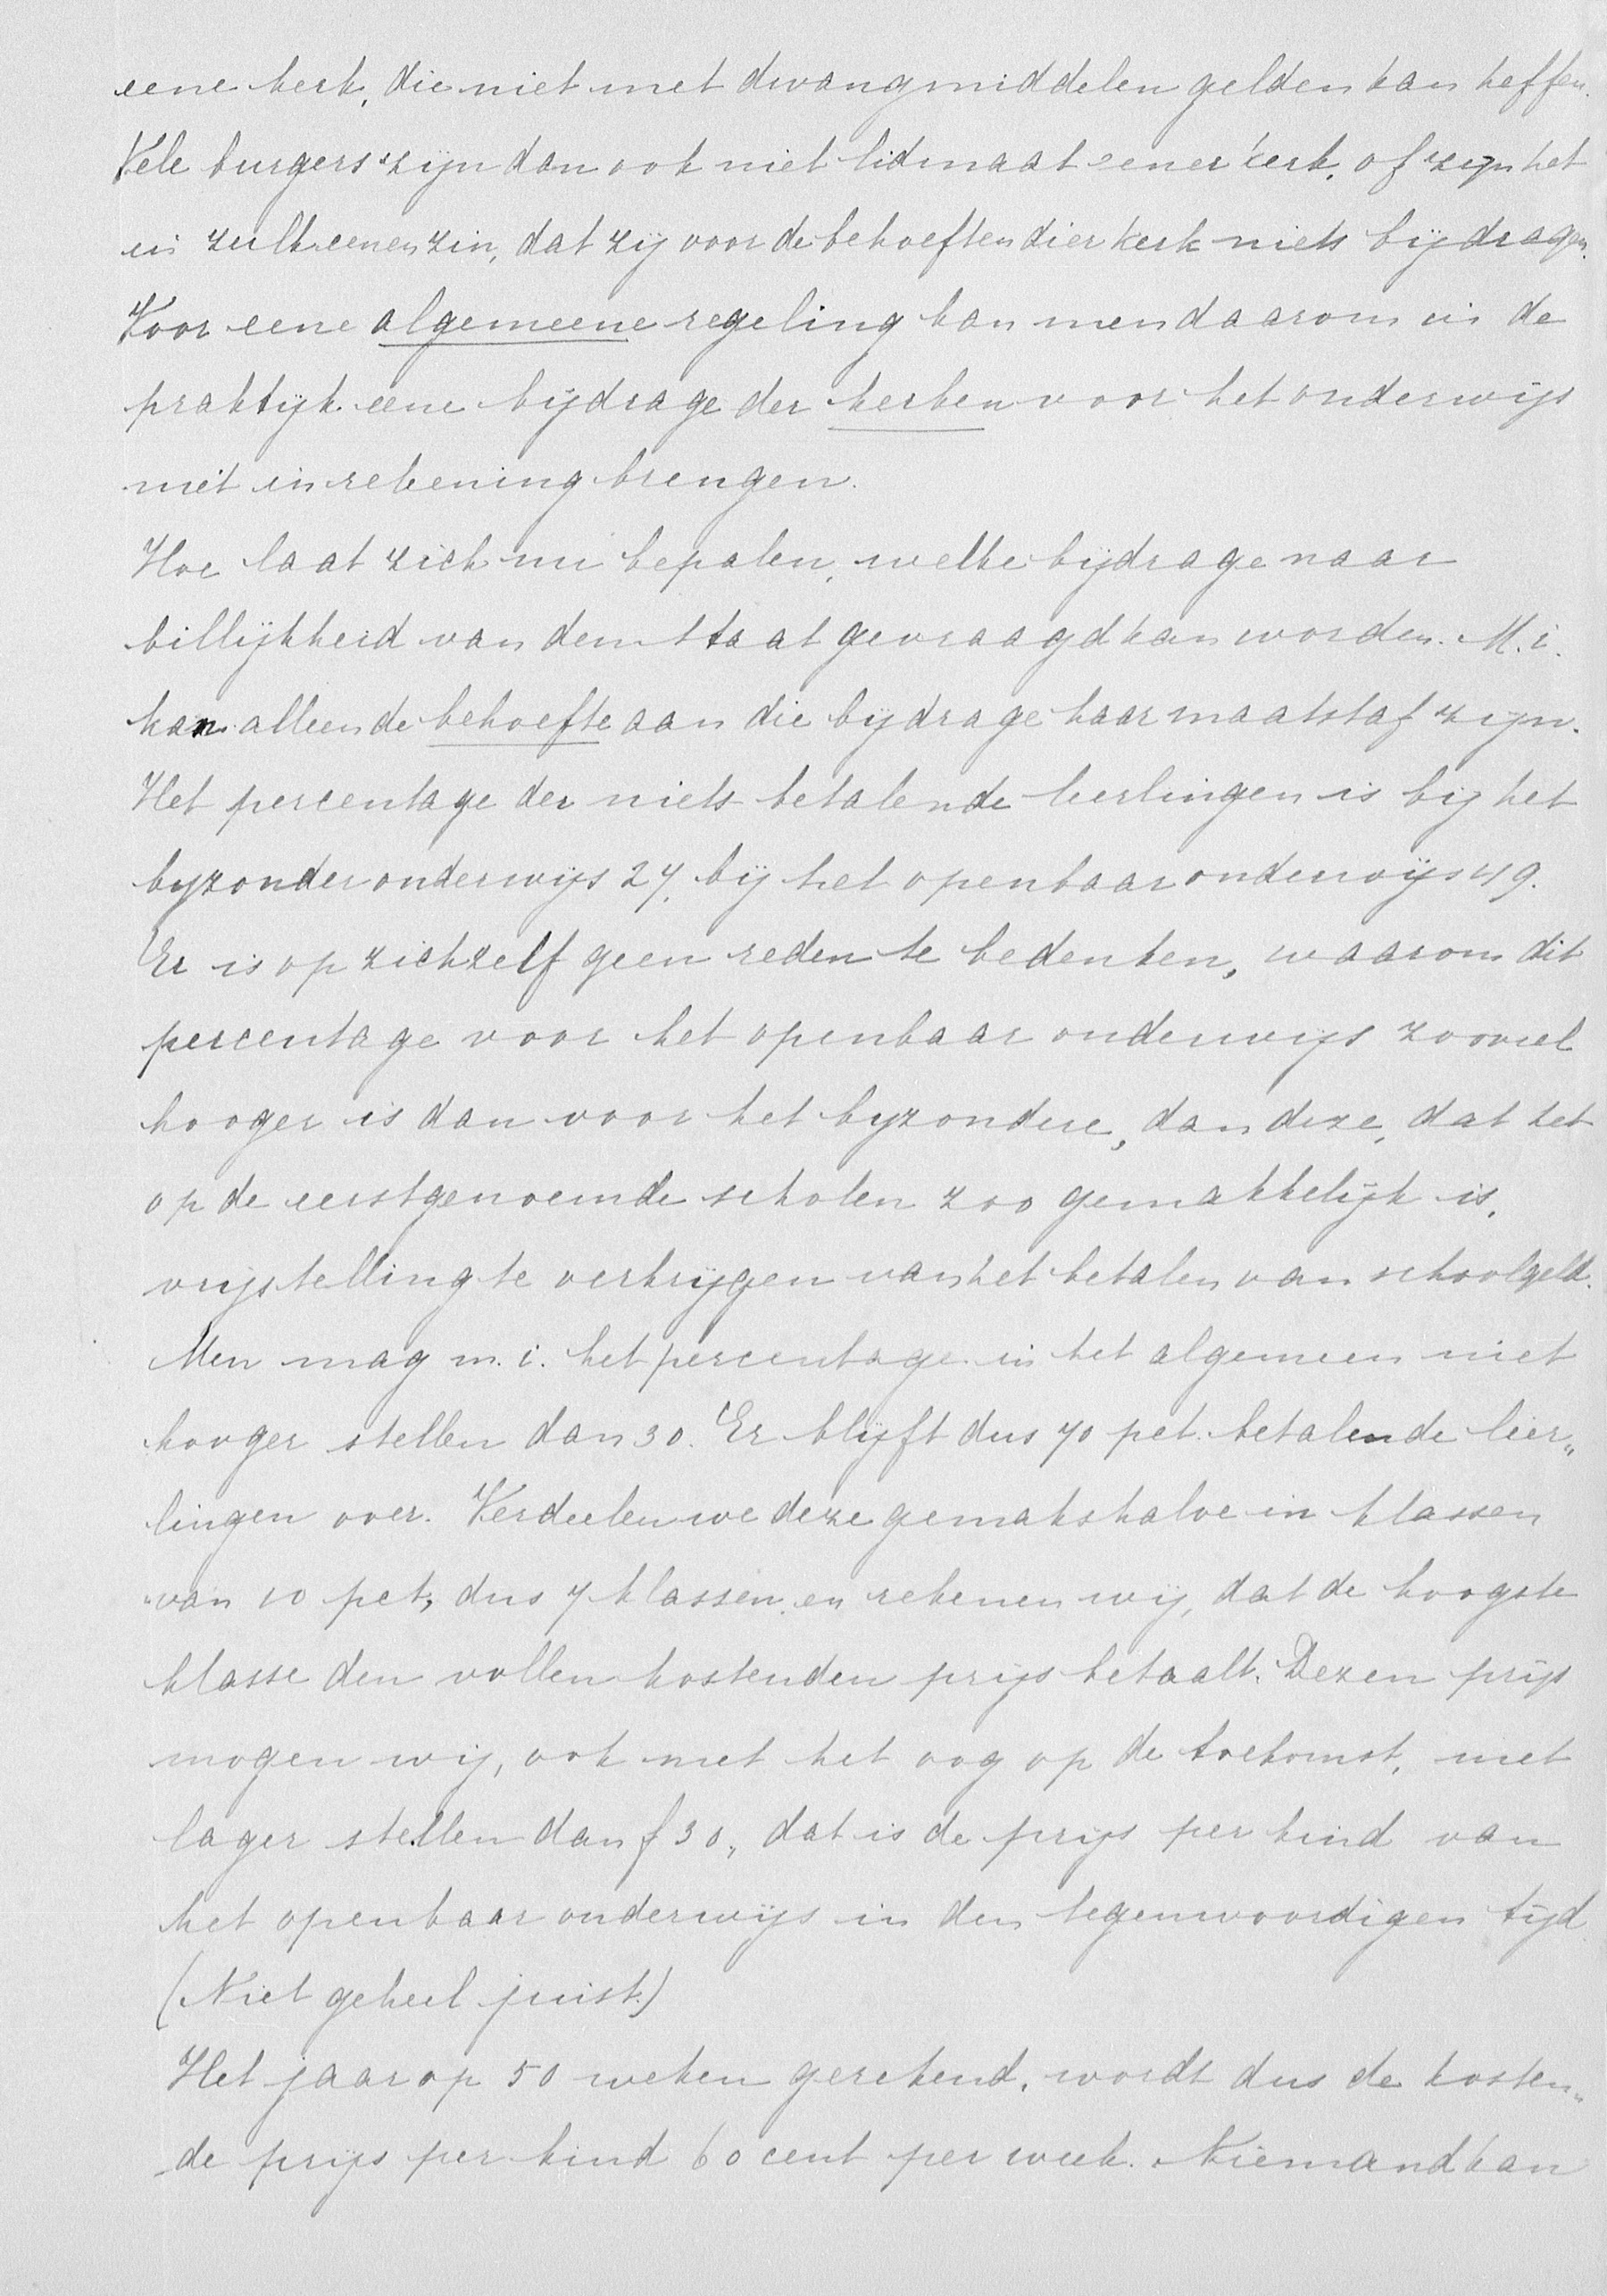 eene kerk, die niet met dwangmiddelen gelden kan heffen.
Vele burgers zijn dan ook niet lidmaat eener kerk, of zijn het
in zulk eenen zin, dat zij voor de behoeften dier kerk niets bijdragen.
Voor eene algemeene regeling kan men daarom in de
praktijk eene bijdrage der kerken voor het onderwijs
niet in rekening brengen.
Hoe laat zich nu bepalen, welke bijdrage naar
billijkheid van den Staat gevraagd kan worden. M.i.
kan alleen de behoefte aan die bijdrage haar maatstaf zijn.
Het percentage der niets betalende leerlingen is bij het
byzonder onderwijs 27, bij het openbaar onderwijs 49.
Er is op zichzelf geen reden te bedenken, waarom dit
percentage voor het openbaar onderwijs zooveel
hooger is dan voor het byzondere, dan deze, dat het
op de eerstgenoemde scholen zoo gemakkelijk is,
vrijstelling te verkrijgen van het betalen van schoolgeld.
Men mag m.i. het percentage in het algemeen niet
hooger stellen dan 30. Er blijft dus 70 pct. betalende leer„
lingen over. Verdeelen we deze gemakshalve in klassen
van 10 pct, dus 7 klassen, en rekenen wij, dat de hoogste
klasse den vollen kostenden prijs betaalt. Dezen prijs
mogen wij, ook met het oog op de toekomst, niet
lager stellen dan f 30„ dat is de prijs per kind van
het openbaar onderwijs in den tegenwoordigen tijd.
(Niet geheel juist.)
Het jaar op 50 weken gerekend, wordt dus de kosten„
de prijs per kind 60 cent per week. Niemand kan